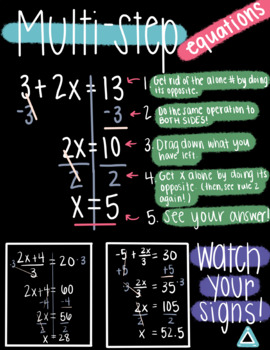 Multi-step
equations
3 + 2x = 13
-3 -3
2x = 10
2 2
x = 5
1. Get rid of the alone # by doing
its opposite.
2. Do the same operation to
BOTH SIDES!
3. Drag down what you
have left
4. Get x alone by doing its
opposite (then, see rule 2
again!)
5. See your answer!
3 · 2x+4 = 20 · 3
3
2x+4 = 60
-4 -4
2x = 56
2 2
x = 28
-5 + 2x = 30
3
+5 +5
3 · 2x = 35 · 3
3
2x = 105
2 2
x = 52.5
Watch
your
signs!